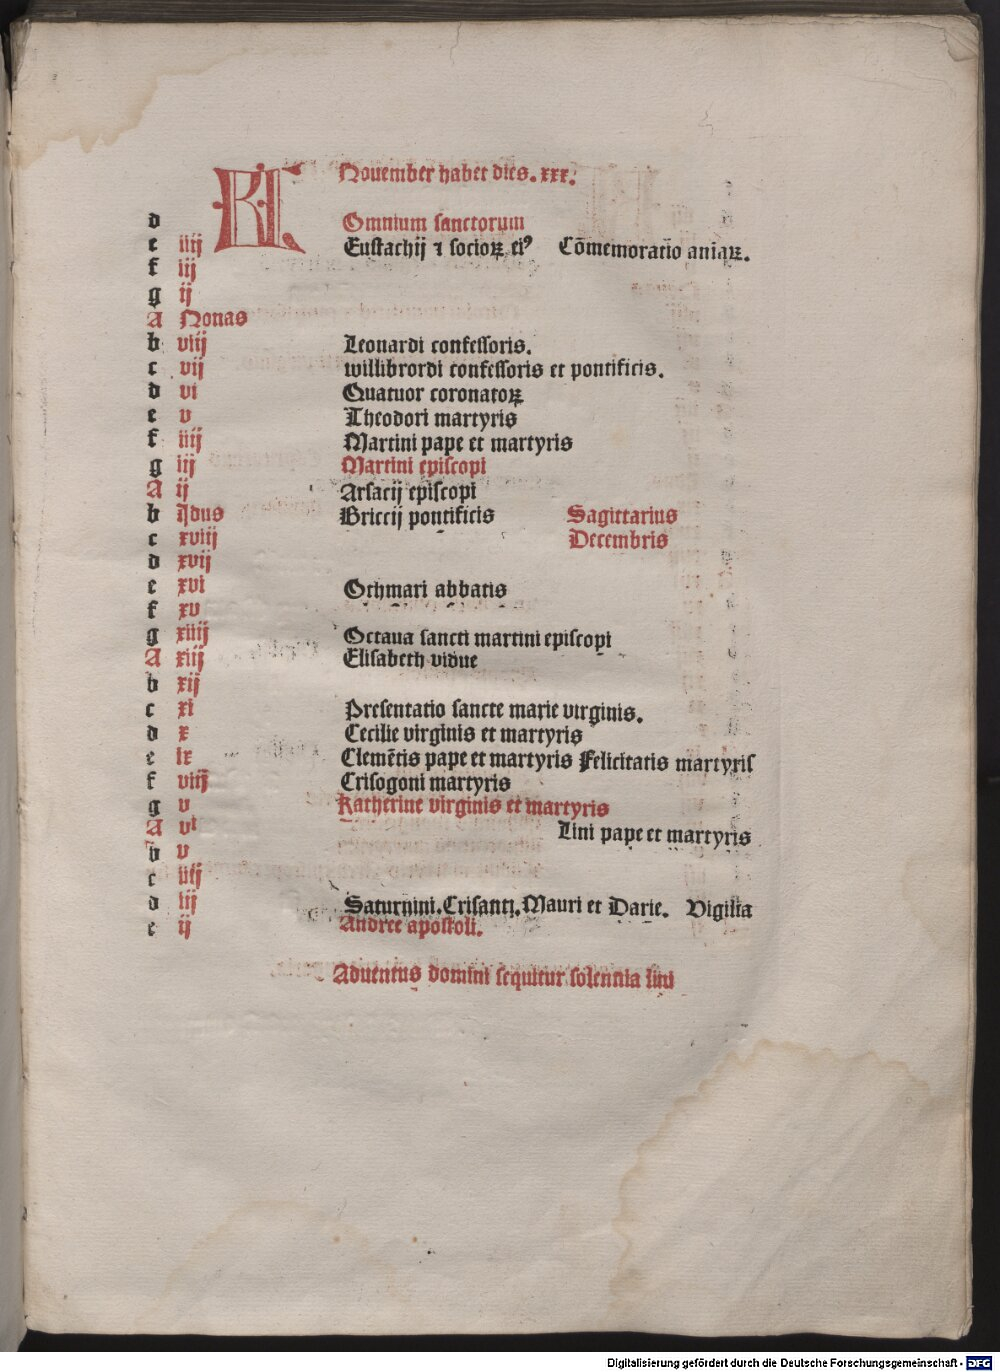 KL November habet dies. xxx.
d Omnium sanctorum
e iiij Eustachij ⁊ socioꝝ eiꝰ Cōmemoratio aniaꝝ.
f iij
g ij
A Nonas
b viij Leonardi confessoris.
c vij willibrordi confessoris et pontificis.
d vi Quatuor coronatoꝝ
e v Theodori martyris
f iiij Martini pape et martyris
g iij Martini episcopi
A ij Arsacij episcopi
b Idus Briccij pontificis Sagittarius
c xviij Decembris
d xvij
e xvi Othmari abbatis
f xv
g xiiij Octaua sancti martini episcopi
A xiij Elisabeth vidue
b xij
c xi Presentatio sancte marie virginis.
d x Cecilie virginis et martyris
e ix Clemētis pape et martyris Felicitatis martyris
f viij Crisogoni martyris
g v Katherine virginis et martyris
A vi Lini pape et martyris
b v
c iiij
d iij Saturnini. Crisanti. Mauri et Darie. Vigilia
e ij Andree apostoli.
Aduentus domini sequitur solennia lini
Digitalisierung gefördert durch die Deutsche Forschungsgemeinschaft - DFG